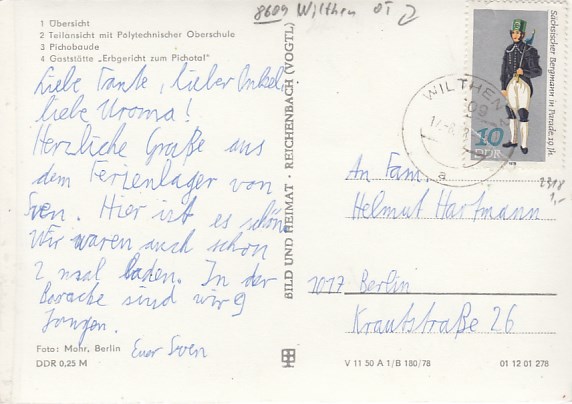 8609 Wilthen OT 2
1 Übersicht
2 Teilansicht mit Polytechnischer Oberschule
3 Pichobaude
4 Gaststätte „Erbgericht zum Pichotal"
Liebe Tante, lieber Onkel
liebe Uroma!
Herzliche Grüße aus
dem Ferienlager von
Sven. Hier ist es schön
Wir waren auch schon
2 mal baden. In der
Baracke sind wir 9
Jungen.
Euer Sven
Foto: Mohr, Berlin
DDR 0,25 M
BILD UND HEIMAT · REICHENBACH (VOGTL)
WILTHEN
a
Sächsischer Bergmann in Parade 19. Jh.
10
DDR
2318
1,-
An Fam.
Helmut Hartmann
1017 Berlin
Krautstraße 26
V 11 50 A 1/B 180/78
01 12 01 278